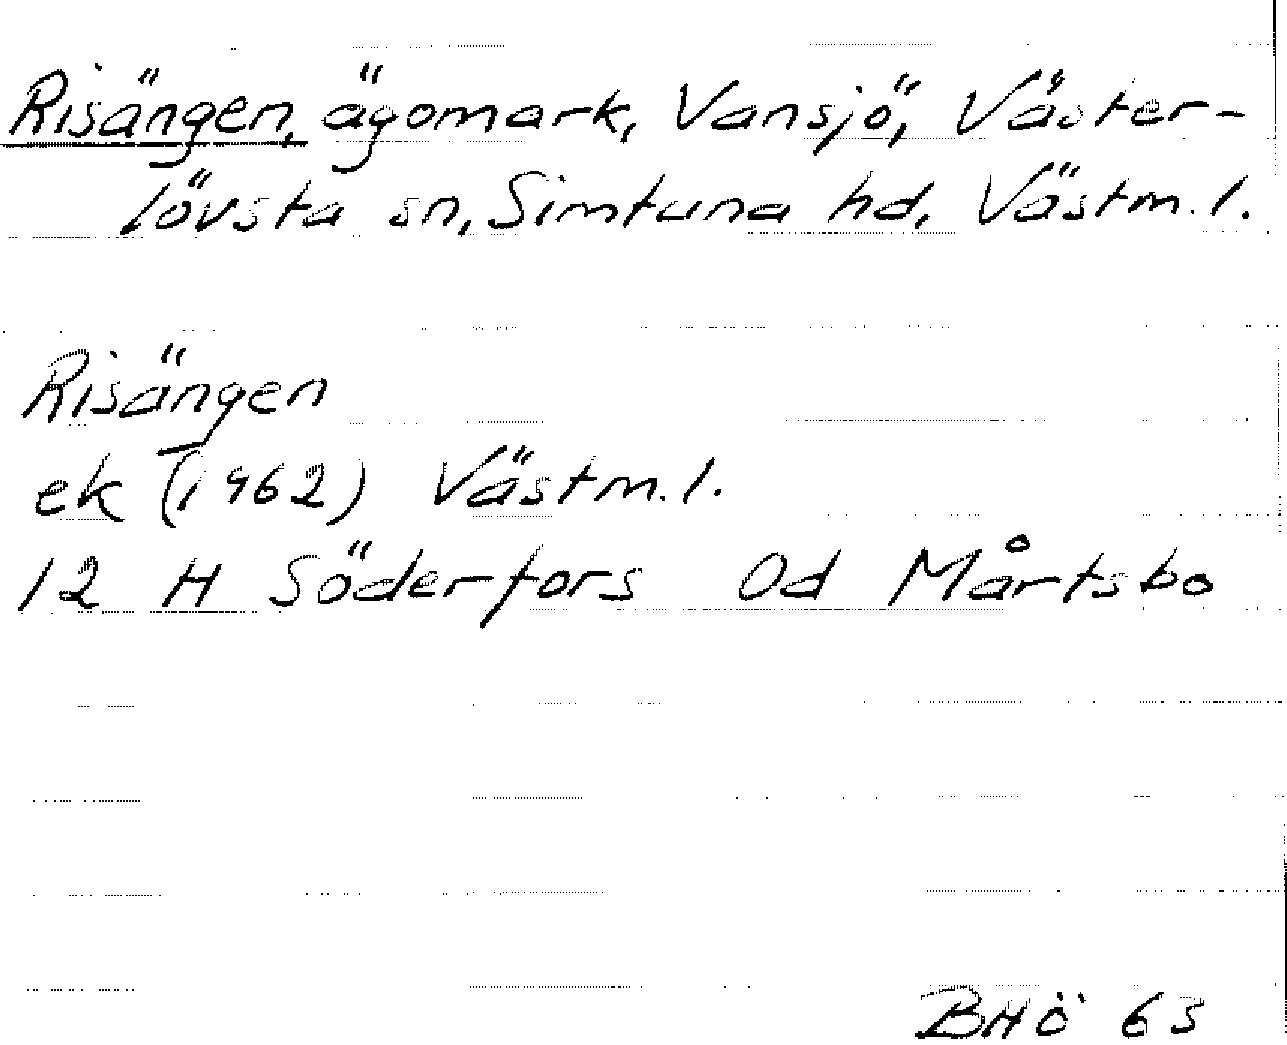 Risängen, ägomark, Vansjö, Väster-
lövsta sn, Simtuna hd, Västm.l.
Risängen
ek (1962) Västm.l.
12 H Söderfors Od Mårtsbo
BHÖ 63